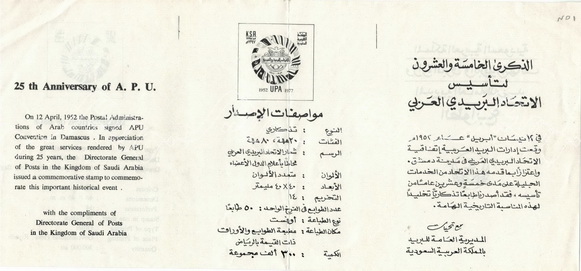 25 th Anniversary of A. P. U.
On 12 April, 1952 the Postal Administra-
tions of Arab countries signed APU
Convention in Damascus . In appreciation
of the great services rendered by APU
during 25 years, the Directorate General
of Posts in the Kingdom of Saudi Arabia
issued a commemorative stamp to commemo-
rate this important historical event .
with the compliments of
Directorate General of Posts
in the Kingdom of Saudi Arabia
KSA
1952 UPA 1977
مواصفات الإصدار
النوع : تذكاري
الفئات : ٢٠ هـ، ٨٠ هـ
الرسم : شعار الاتحاد البريدي العربي
محاطا بأعلام الدول الأعضاء
الألوان : متعدد الألوان
الأبعاد : ٤٠ × ٤٠ مليمتر
التخريم : ١٤
عدد الطوابع في الفرخ الواحد : ٥٠ طابعًا
نوع الطباعة : أوفست
مكان الطباعة : مطبعة الطوابع والأوراق
ذات القيمة بالرياض
الكمية : ٣٠٠ ألف مجموعة
الذكرى الخامسة والعشرون
لتأسيس
الاتحاد البريدي العربي
في ١٢ نيسان "أبريل" عام ١٩٥٢م
وقعت إدارات البريد العربية اتفاقية
الاتحاد البريدي العربي في مدينة دمشق.
واعتزازًا بما قدمه هذا الاتحاد من الخدمات
الجليلة على مدى خمسة وعشرين عاما من
تأسيسه، فقد أصدر طابعًا تذكاريًا تخليدًا
لهذه المناسبة التاريخية الهامة.
مع تحيات
المديرية العامة للبريد
بالمملكة العربية السعودية